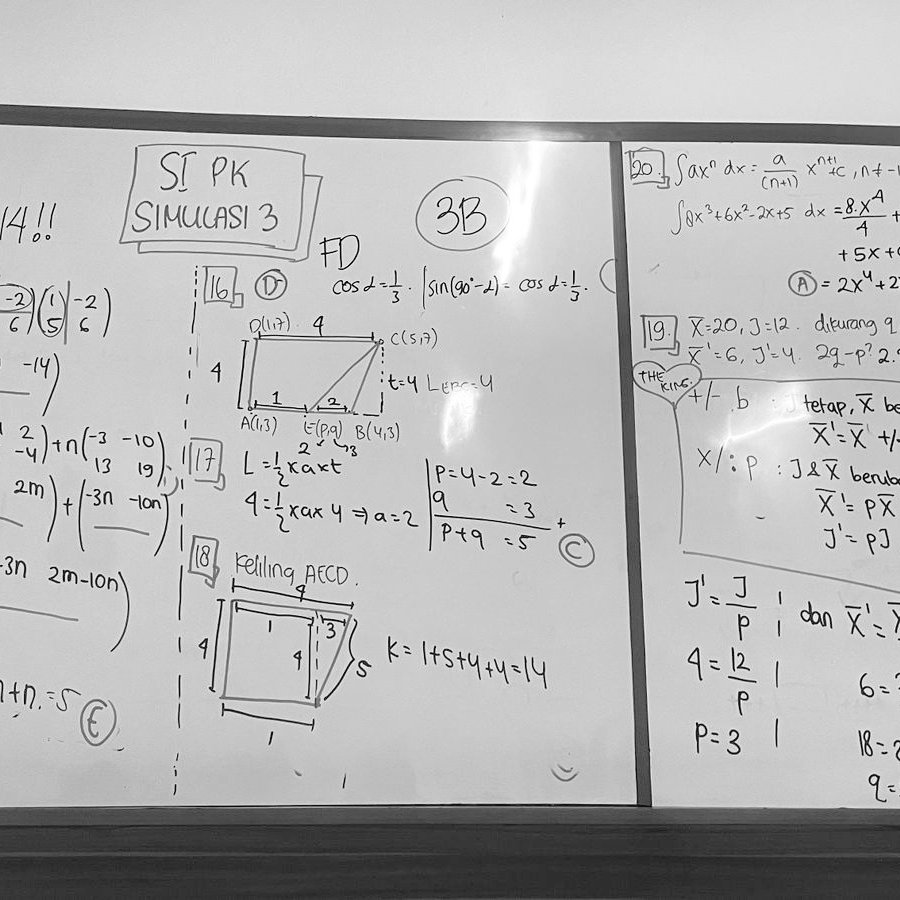 14!!
-2
6
1
5
-2
6
-14)
2
-4
)+n(-3 -10
13 19)
2m)+(-3n -10n)
-3n 2m-10n)
+n=5
E
SI PK
SIMULASI 3
3B
FD
16 D
cos α=1/3. | sin(90°-α)= cos α=1/3.
D(1,7) 4 C(5,7)
4
t=4
1 2
A(1,3) E(p,q) B(4,3)
2 3
17
L=1/2xaxt
4=1/2xax4⇒a=2
p=4-2=2
q =3
+
p+q =5
C
18 Keliling AECD.
4
4 1 3
4 5
1
K=1+5+4+4=14
20. ∫axⁿ dx= a/(n+1) xⁿ⁺¹+c, n≠-1
∫8x³+6x²-2x+5 dx=8.x⁴/4 +
+5x+
A =2x⁴+2
19. X̄=20, J=12. dikurang q
X̄'=6, J'=4. 2q-p?
THE KING.
+/- b : J tetap, X̄ be
X̄'=X̄ +/-
x/: p : J&X̄ beruba
X̄'=pX̄
J'=pJ
J'=J/p | dan X̄'=
4=12/p | 6=
p=3 | 18=
q=